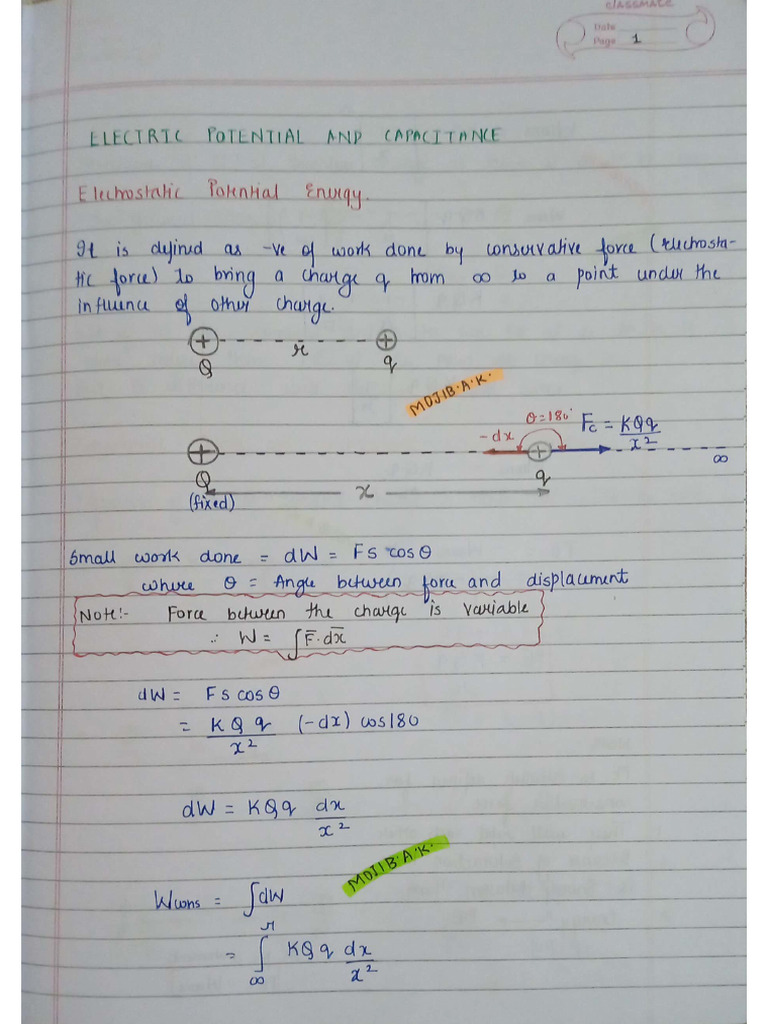 classmate
Date
Page 1
ELECTRIC POTENTIAL AND CAPACITANCE
Electrostatic Potential Energy.
It is defined as -ve of work done by conservative force (electrosta-
tic force) to bring a charge q from ∞ to a point under the
influence of other charge.
+ r +
Q q
MOJIB.A.K.
-dx θ=180° Fc = KQq/x²
+ + ∞
Q q
(fixed) x
Small work done = dW = Fs cosθ
where θ = Angle between force and displacement
Note:- Force between the charge is variable
∴ W = ∫F̅·dx̅
dW = Fs cosθ
= KQq/x² (-dx) cos180
dW = KQq dx/x²
MOJIB.A.K.
Wcons = ∫dW
= ∫_∞^r KQq dx/x²